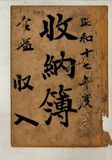 昭和十七年度
收納簿
收入